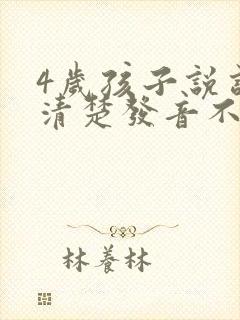 4歲孩子說
清楚發音不
林養林